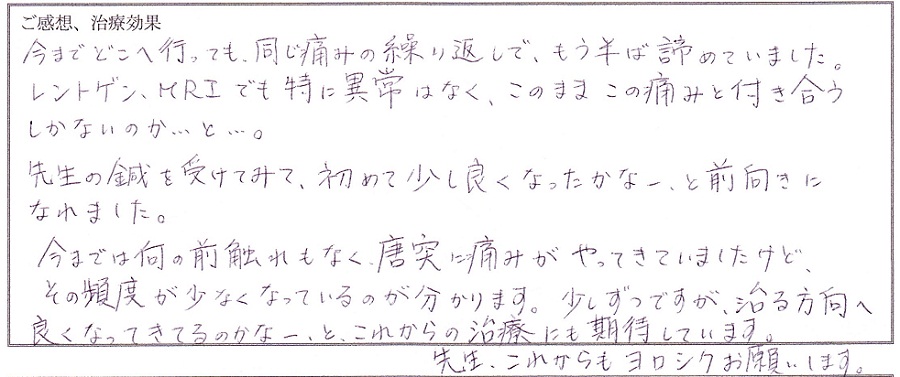 ご感想、治療効果
今までどこへ行っても、同じ痛みの繰り返しで、もう半ば諦めていました。
レントゲン、MRIでも特に異常はなく、このままこの痛みと付き合う
しかないのか…と…。
先生の鍼を受けてみて、初めて少し良くなったかなー、と前向きに
なれました。
今までは何の前触れもなく、唐突に痛みがやってきていましたけど、
その頻度が少なくなっているのが分かります。少しずつですが、治る方向へ
良くなってきてるのかなー、と、これからの治療にも期待しています。
先生、これからもヨロシクお願いします。